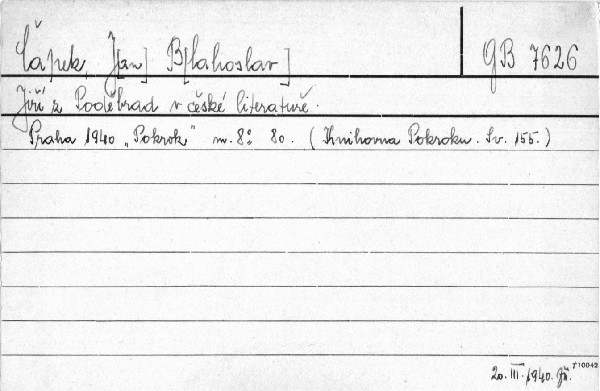 Čápek, J[an] B[lahoslav] GB 7626
Jiří z Poděbrad v české literatuře.
Praha 1940 „Pokrok" m. 8° 80. (Knihovna Pokroku. Sv. 155.)
20. III. 1940.
†10042